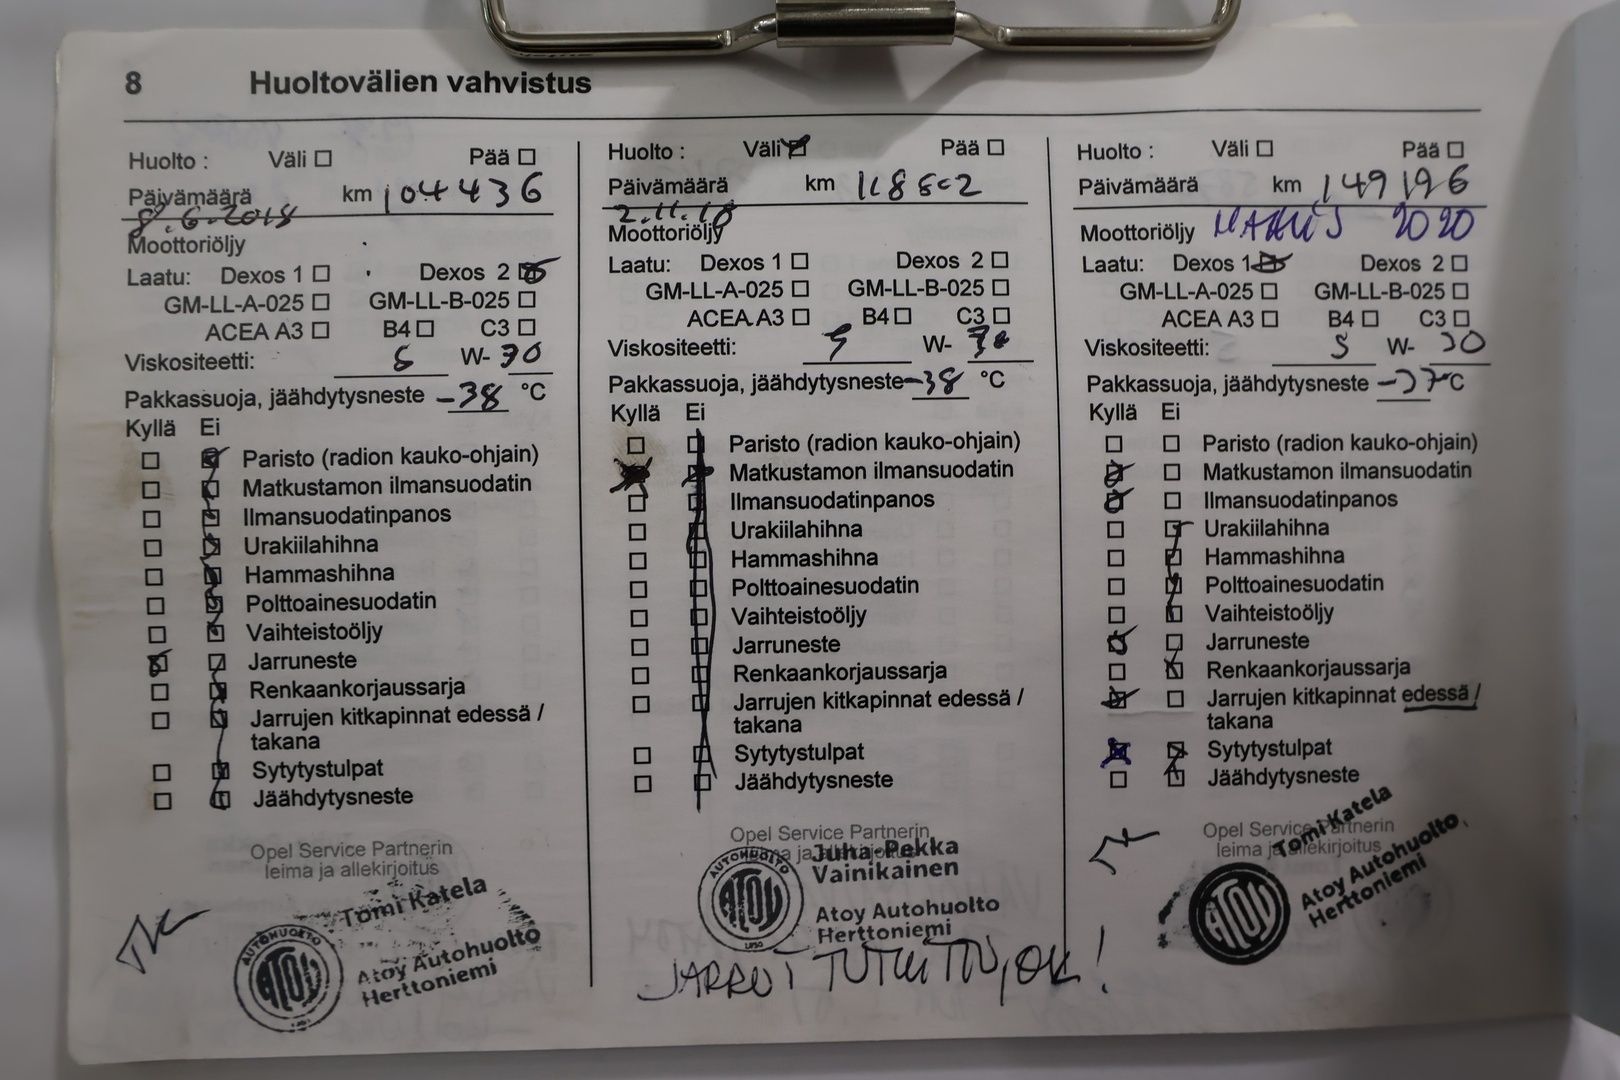 8 Huoltovälien vahvistus
Huolto : Väli Pää
Päivämäärä km 104436
8.6.2018
Moottoriöljy
Laatu: Dexos 1 Dexos 2
GM-LL-A-025 GM-LL-B-025
ACEA A3 B4 C3
Viskositeetti: 5 W- 30
Pakkassuoja, jäähdytysneste -38 °C
Kyllä Ei
Paristo (radion kauko-ohjain)
Matkustamon ilmansuodatin
Ilmansuodatinpanos
Urakiilahihna
Hammashihna
Polttoainesuodatin
Vaihteistoöljy
Jarruneste
Renkaankorjaussarja
Jarrujen kitkapinnat edessä /
takana
Sytytystulpat
Jäähdytysneste
Opel Service Partnerin
leima ja allekirjoitus
Tomi Katela
AUTOHUOLTO
ATOY
Atoy Autohuolto
Herttoniemi
Huolto : Väli Pää
Päivämäärä km
2.11.18
Moottoriöljy
Laatu: Dexos 1 Dexos 2
GM-LL-A-025 GM-LL-B-025
ACEA A3 B4 C3
Viskositeetti: 5 W- 30
Pakkassuoja, jäähdytysneste -38 °C
Kyllä Ei
Paristo (radion kauko-ohjain)
Matkustamon ilmansuodatin
Ilmansuodatinpanos
Urakiilahihna
Hammashihna
Polttoainesuodatin
Vaihteistoöljy
Jarruneste
Renkaankorjaussarja
Jarrujen kitkapinnat edessä /
takana
Sytytystulpat
Jäähdytysneste
Opel Service Partnerin
leima ja allekirjoitus
Juha-Pekka
Vainikainen
AUTOHUOLTO
ATOY
Atoy Autohuolto
Herttoniemi
JARRUT TUTKITTU, OK!
Huolto : Väli Pää
Päivämäärä km 149196
Moottoriöljy MARRAS 2020
Laatu: Dexos 1 Dexos 2
GM-LL-A-025 GM-LL-B-025
ACEA A3 B4 C3
Viskositeetti: 5 W- 30
Pakkassuoja, jäähdytysneste -37 °C
Kyllä Ei
Paristo (radion kauko-ohjain)
Matkustamon ilmansuodatin
Ilmansuodatinpanos
Urakiilahihna
Hammashihna
Polttoainesuodatin
Vaihteistoöljy
Jarruneste
Renkaankorjaussarja
Jarrujen kitkapinnat edessä /
takana
Sytytystulpat
Jäähdytysneste
Opel Service Partnerin
leima ja allekirjoitus
Tomi Katela
ATOY
Atoy Autohuolto
Herttoniemi